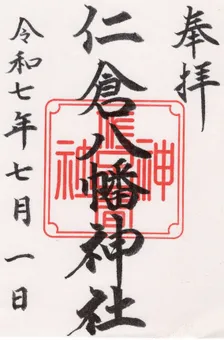 奉拝
仁倉八幡神社
令和七年七月一日